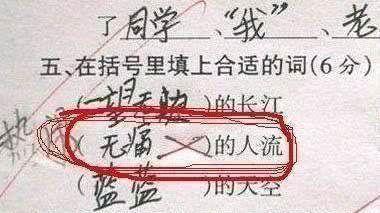 了同学、“我”、老
五、在括号里填上合适的词(6分)
(一望无)的长江
(无痛)的人流
(蓝蓝)的天空